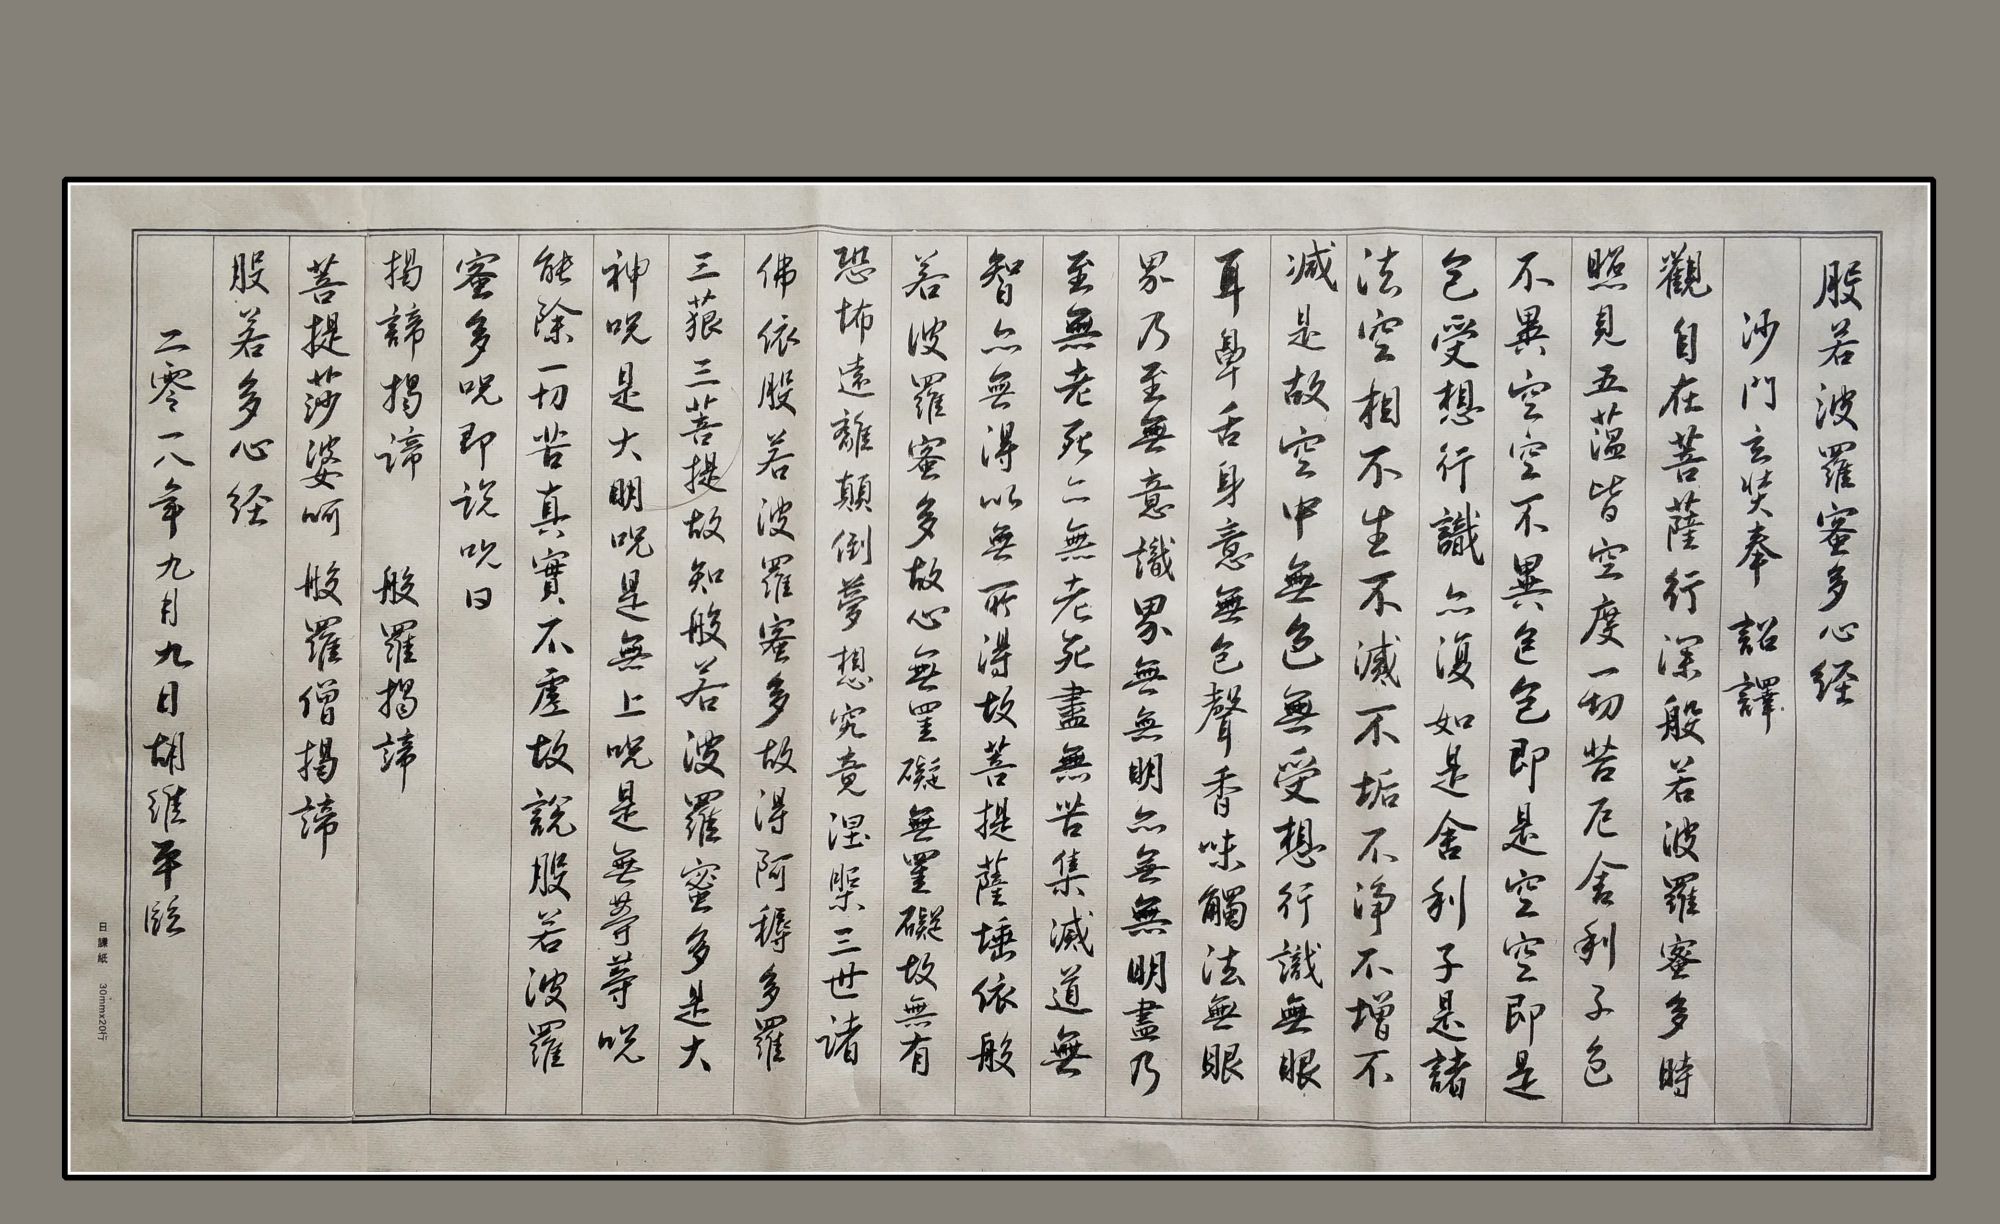 般若波羅蜜多心经
沙門玄奘奉 詔譯
觀自在菩薩行深般若波羅蜜多時
照見五蘊皆空度一切苦厄舍利子色
不異空空不異色色即是空空即是
色受想行識亦復如是舍利子是諸
法空相不生不滅不垢不淨不增不
減是故空中無色無受想行識無眼
耳鼻舌身意無色聲香味觸法無眼
界乃至無意識界無無明亦無無明盡乃
至無老死亦無老死盡無苦集滅道無
智亦無得以無所得故菩提薩埵依般
若波羅蜜多故心無罣礙無罣礙故無有
恐怖遠離顛倒夢想究竟涅槃三世諸
佛依般若波羅蜜多故得阿耨多羅
三藐三菩提故知般若波羅蜜多是大
神呪是大明呪是無上呪是無等等呪
能除一切苦真實不虛故說般若波羅
蜜多呪即说呪曰
揭諦揭谛 般羅揭諦
菩提莎婆呵 般羅僧揭諦
般若多心经
二零一八年九月九日胡维平临
日課紙 30mmx20行